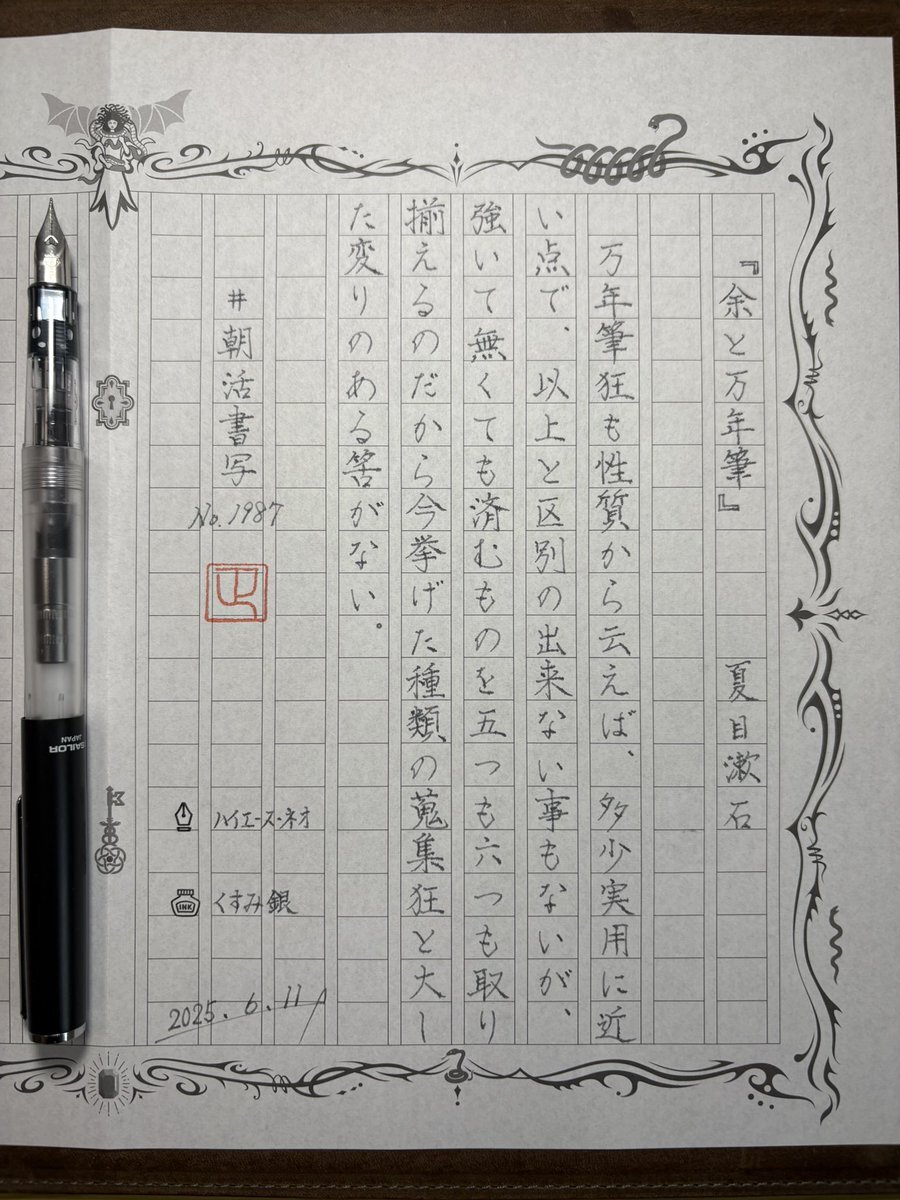 『余と万年筆』 夏目漱石
万年筆狂も性質から云えば、多少実用に近
い点で、以上と区別の出来ない事もないが、
強いて無くても済むものを五つも六つも取り
揃えるのだから今挙げた種類の蒐集狂と大し
た変りのある筈がない。
#朝活書写
No.1987
ハイエース・ネオ
INK
くすみ銀
2025.6.11
SAILOR
JAPAN